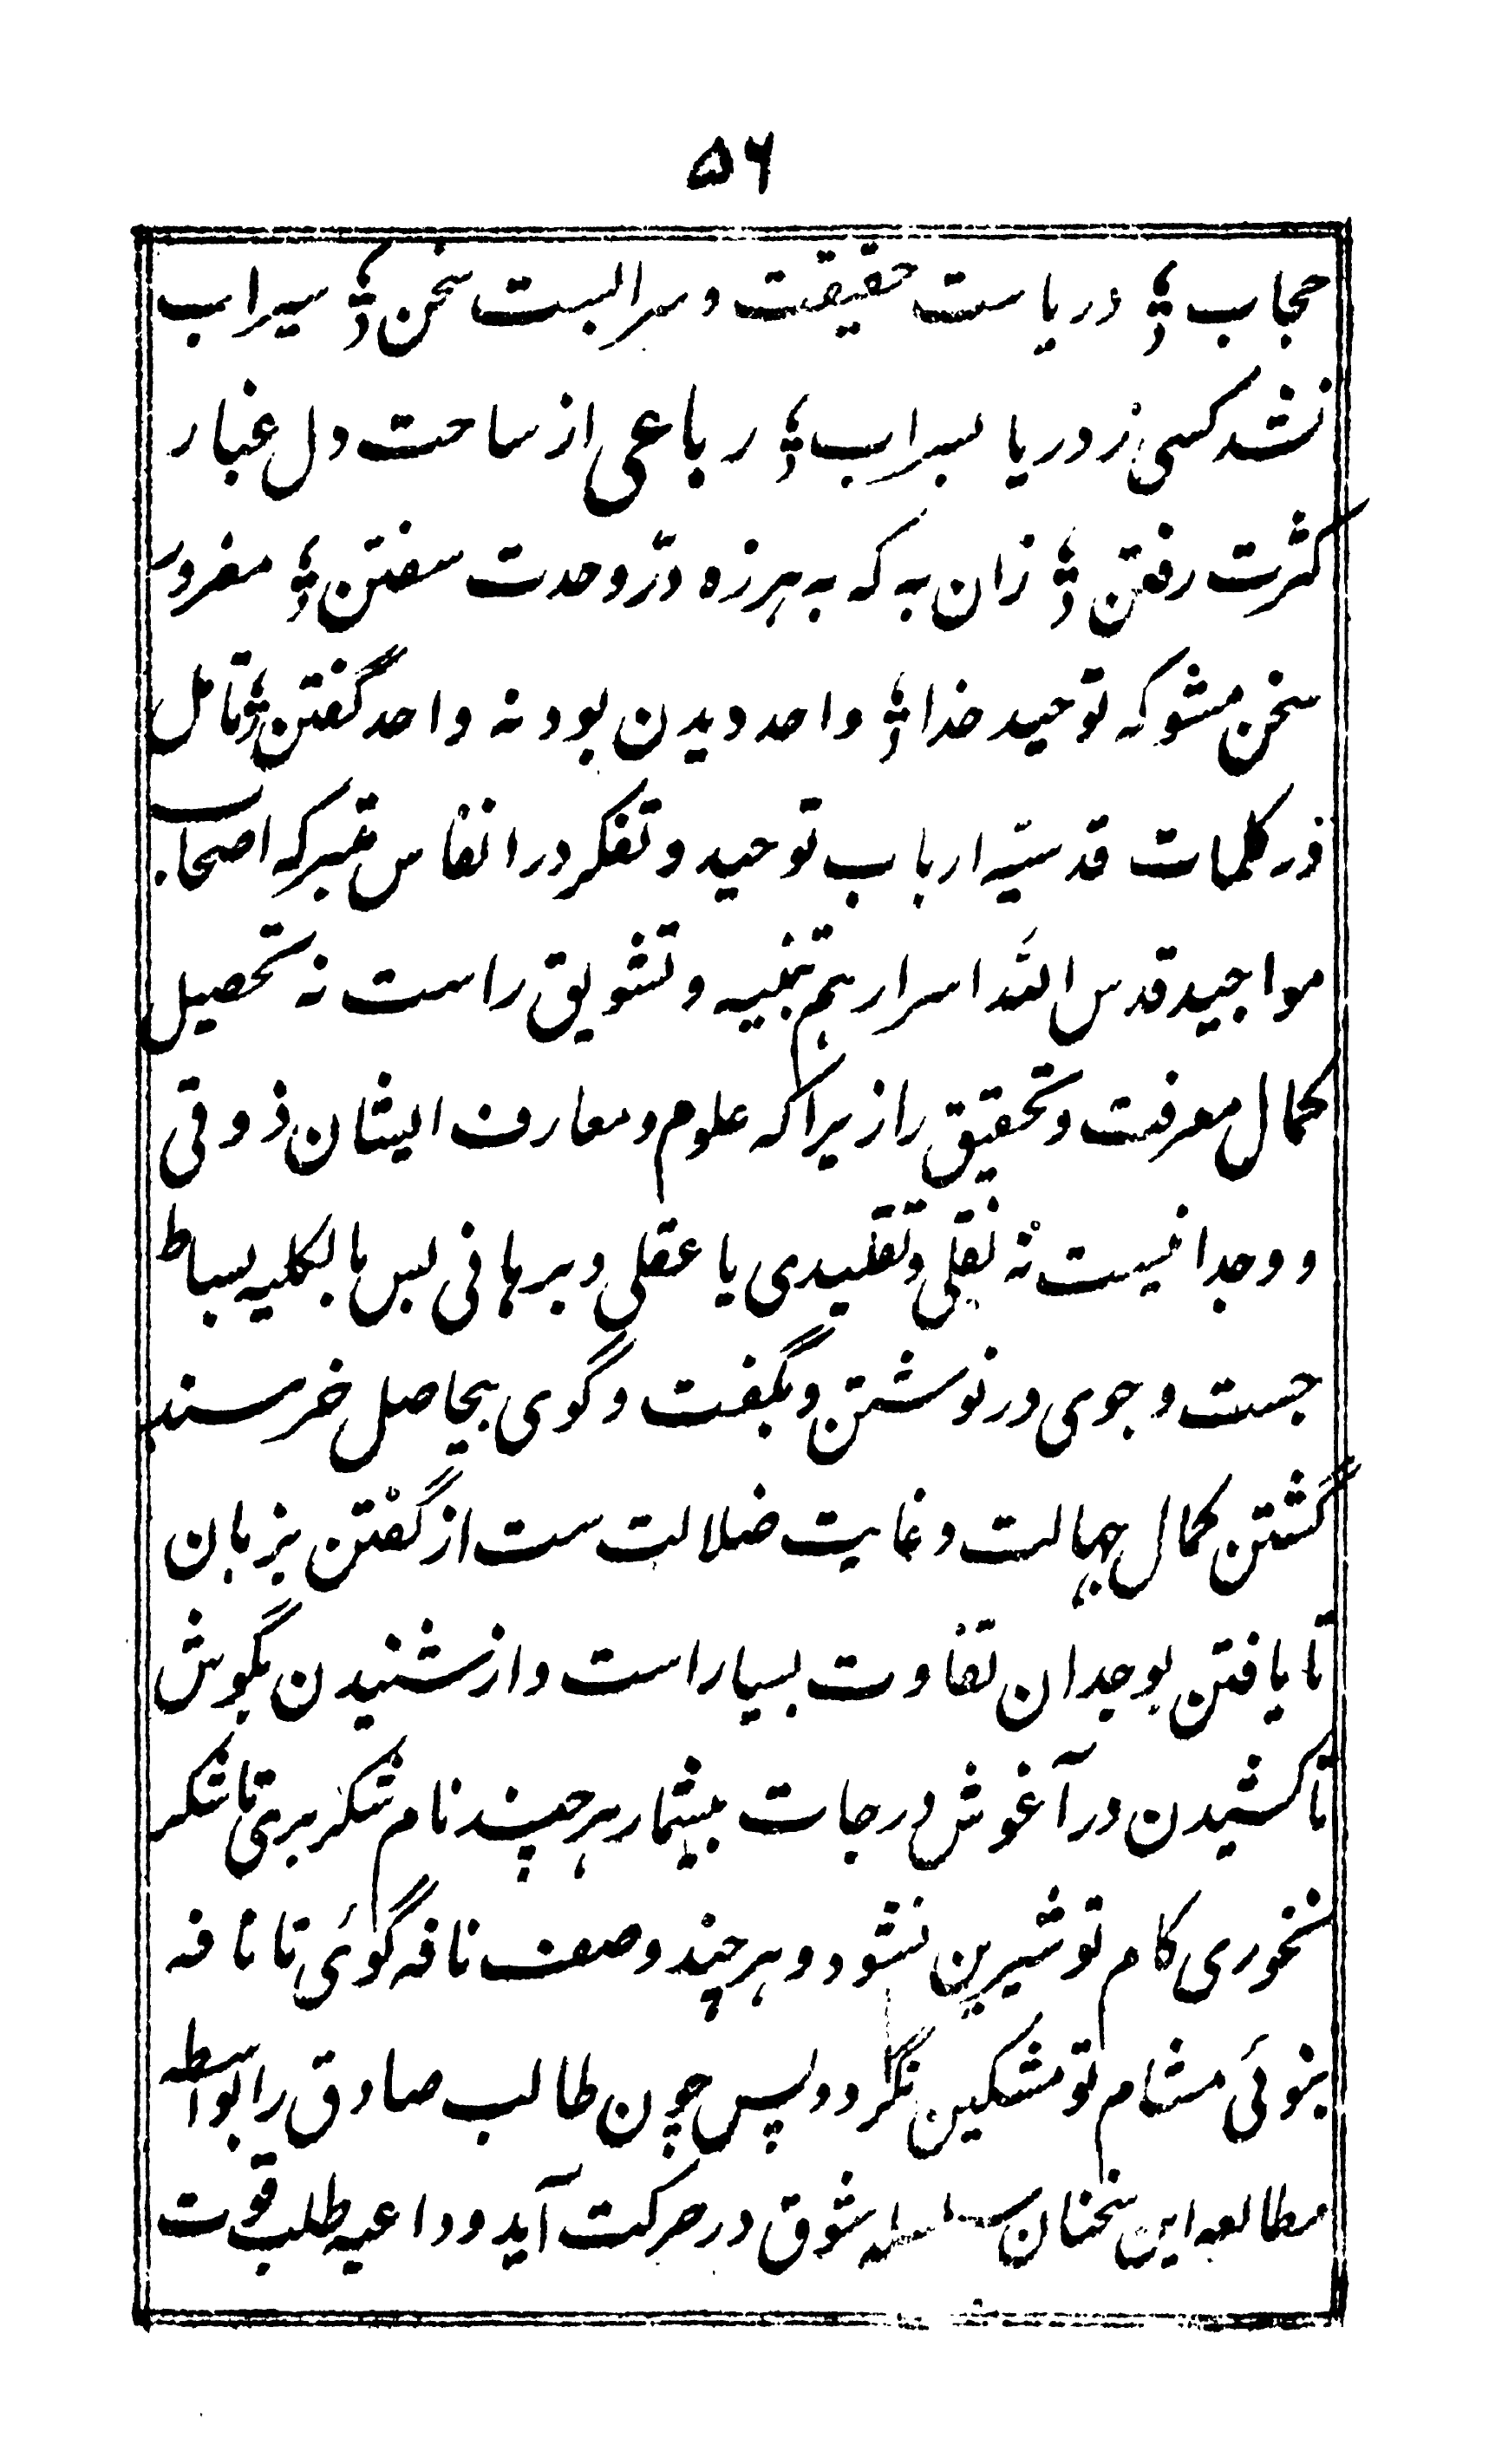 ۵۶
حجاب ؛ دریاست حقیقت و سرابست سخن ؛ سیراب
نشد کسی ز دریا بسراب ؛ رباعی از ساحت دل غبار
کثرت رفتن ؛ زان به که به هرزه درّ وحدت سفتن ؛ مغرور
سخن مشو که توحید خدا ؛ واحد دیدن بود نه واحد گفتن ؛ تامل
در کلمات قدسیّه ارباب توحید و تفکر در انفاس متبرکه اصحاب
مواجید قدس الله اسرارهم تنبیه و تشویق راست نه تحصیل
کمال معرفت و تحقیق را زیرا که علوم و معارف ایشان ذوقی
و وجدانیست نه نقلی و تقلیدی یا عقلی و برهانی پس بالکلیه بساط
جست و جوی در نوشتن و بگفت و گوی بیحاصل خرسند
گشتن کمال جهالت و غایت ضلالت ست از گفتن بزبان
تا یافتن بوجدان تفاوت بسیار است و از شنیدن بگوش
تا کشیدن در آغوش درجات بیشمار هر چند نام شکر بری تا شکر
نخوری کام تو شیرین نشود و هر چند وصف نافه گوئی تا نافه
نبوئی مشام تو مشکین نگردد پس چون طالب صادق را بواسطه
مطالعه این سخنان سلسله شوق در حرکت آید و داعیه طلب قوت